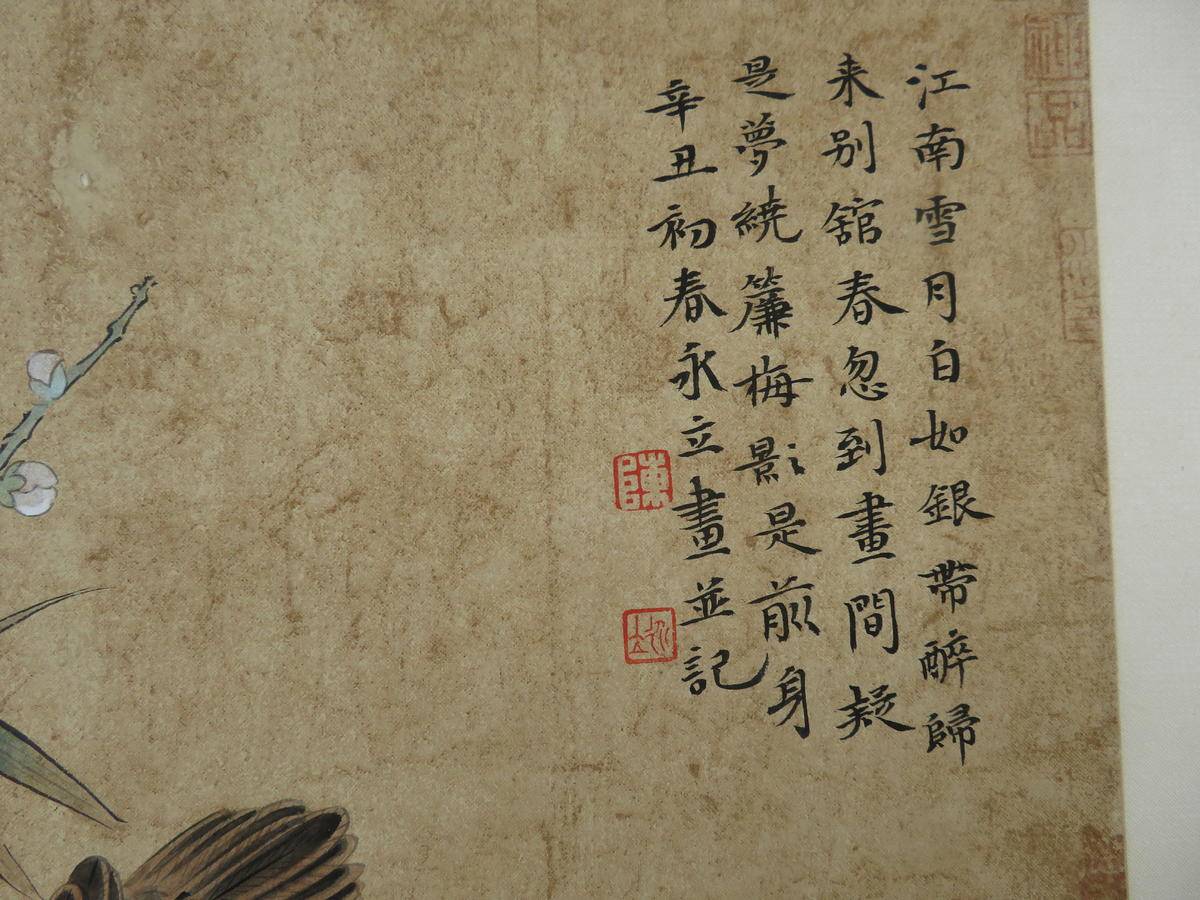 江南雪月白如銀帶醉歸
来别舘春忽到畫間疑
是夢繞簾梅影〻是前身
辛丑初春永立畫並記
陳
永立
神品